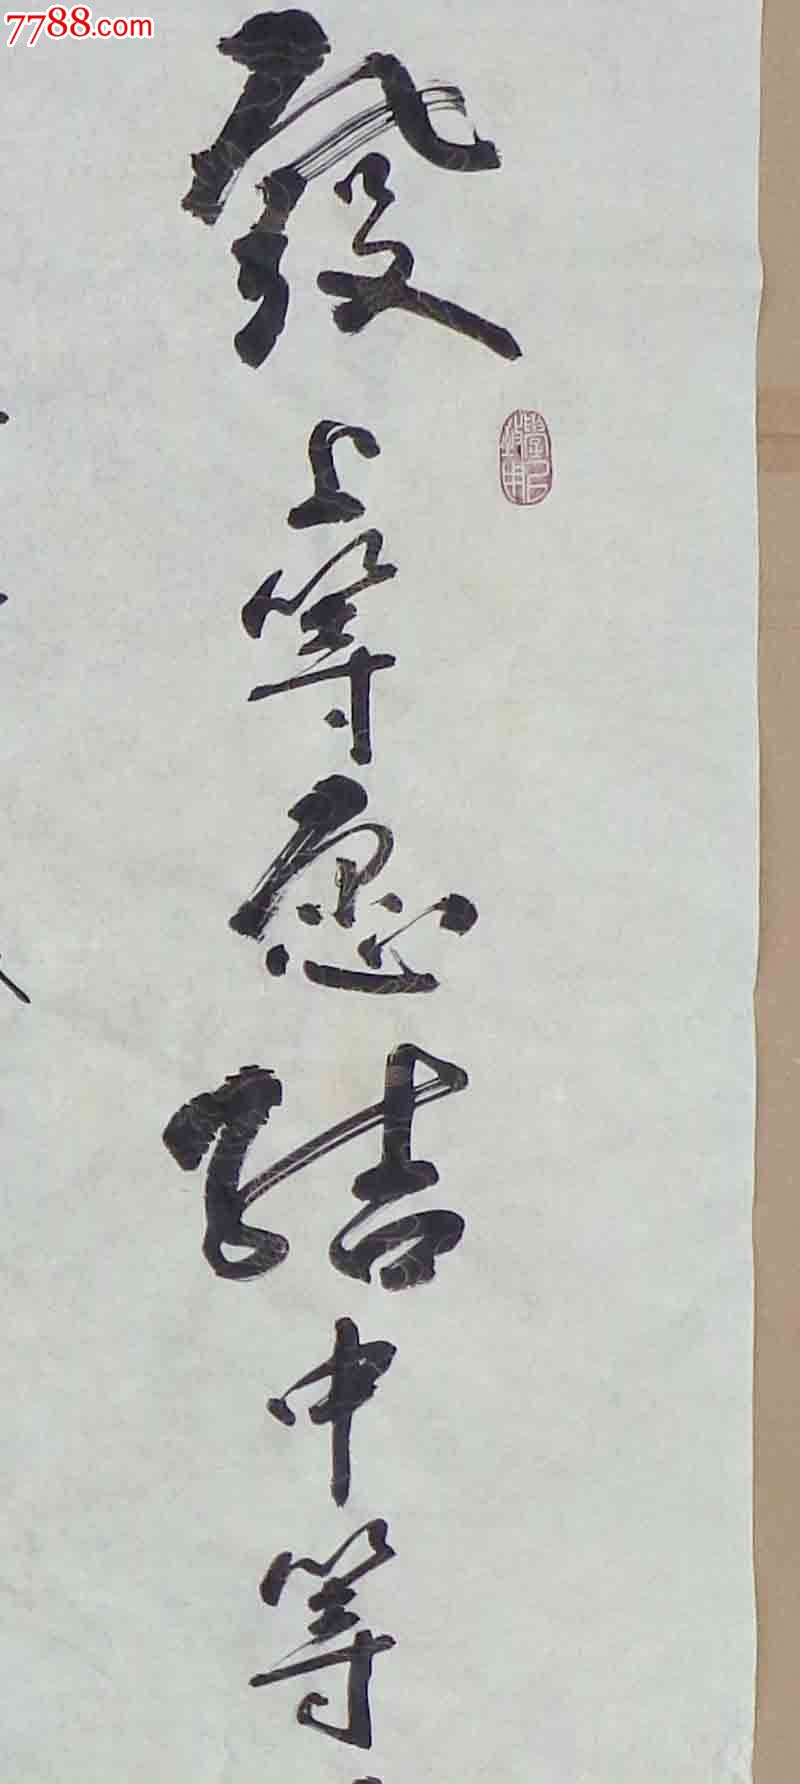 7788.com
發上等愿结中等